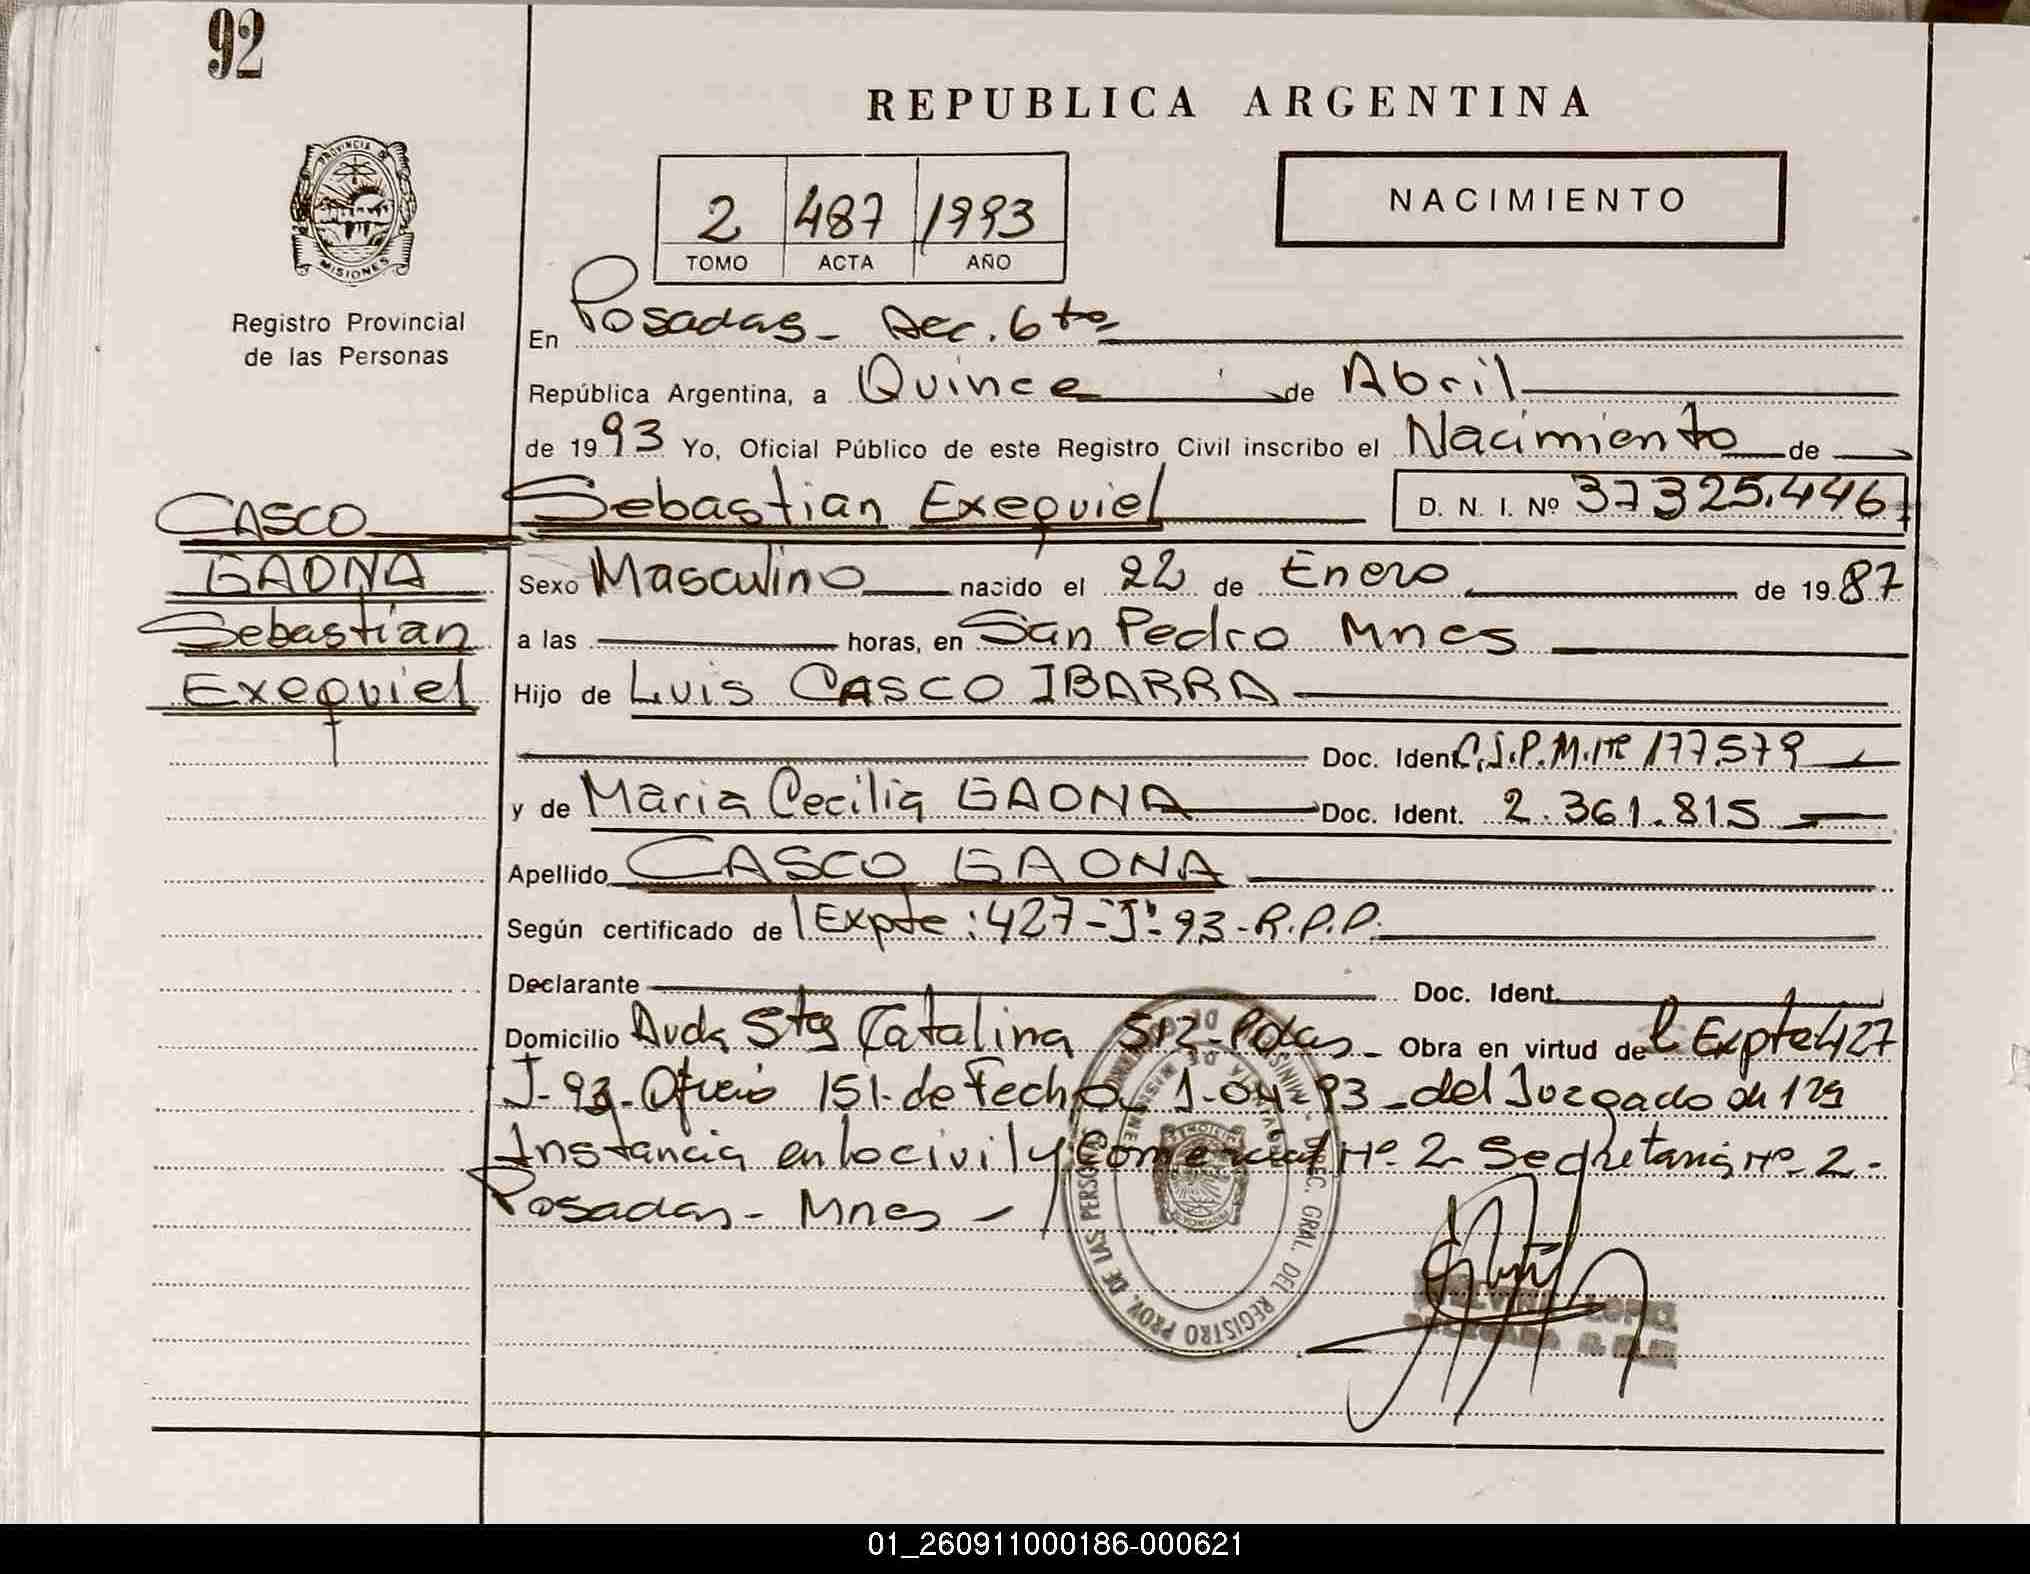 92
REPUBLICA ARGENTINA
PROVINCIA DE
MISIONES
2 487 1993
TOMO ACTA AÑO
NACIMIENTO
Registro Provincial
de las Personas
En Posadas - Sec. 6ta
República Argentina, a Quince de Abril
de 1993 Yo, Oficial Público de este Registro Civil inscribo el Nacimiento de
CASCO
GAONA
Sebastián
Exequiel
Sebastian Exequiel D. N. I. Nº 37325.446
Sexo Masculino nacido el 22 de Enero de 1987
a las horas, en San Pedro Mnes
Hijo de Luis CASCO IBARRA
Doc. Ident. C.I.P.M. Nº 177.579
y de Maria Cecilia GAONA Doc. Ident. 2.361.815
Apellido CASCO GAONA
Según certificado de Expte: 427-"J"-93-R.P.P.
Declarante Doc. Ident.
Domicilio Avda Sta Catalina Pdas - Obra en virtud del Expte 427
J-93-Oficio 151-de Fecha 1-04-93-del Juzgado de 1ra
Instancia en lo civil y Comercial Nº 2 Secretaria Nº 2-
Posadas - Mnes -
DE LAS PERSONAS
DIREC. GRAL. DEL REGISTRO PROV.
LOPEZ
01_260911000186-000621